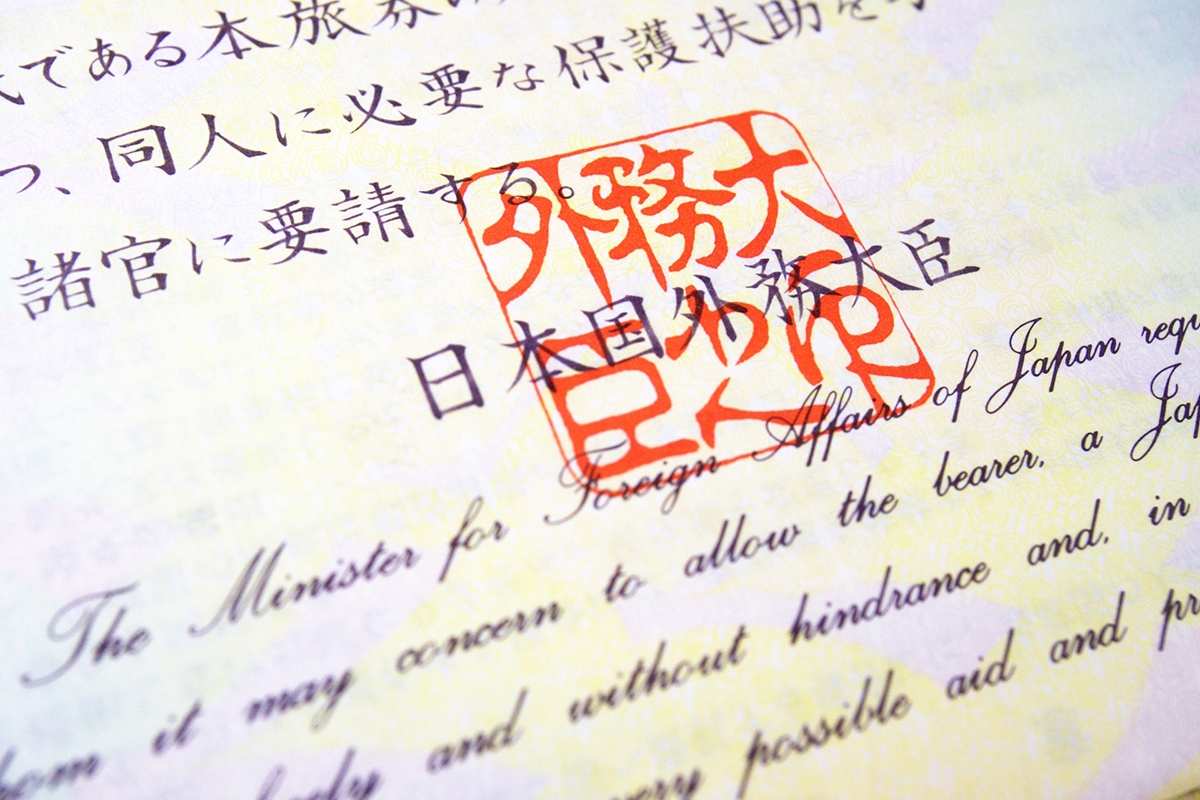 である本旅券
つ、同人に必要な保護扶助を
諸官に要請する。
外務大
日本国外務大臣
The Minister for Foreign Affairs of Japan requ
hom it may concern to allow the bearer, a Jap
and without hindrance and, in
very possible aid and pr